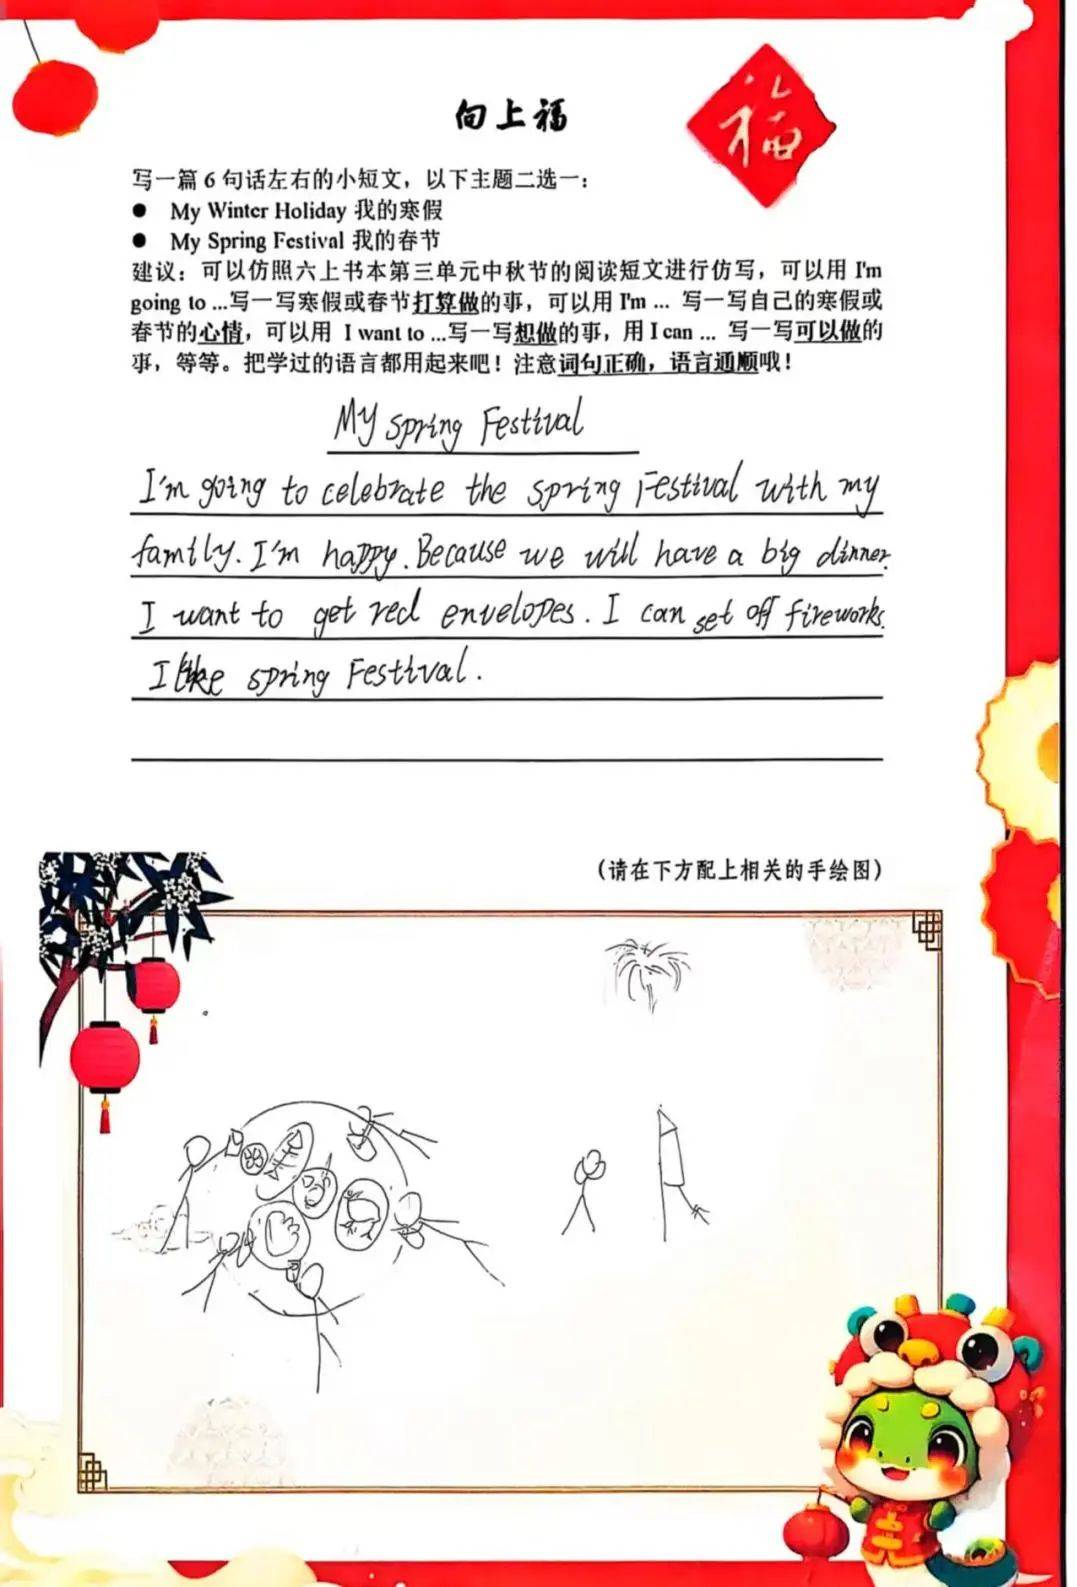 向上福
福
写一篇 6 句话左右的小短文，以下主题二选一：
● My Winter Holiday 我的寒假
● My Spring Festival 我的春节
建议：可以仿照六上书本第三单元中秋节的阅读短文进行仿写，可以用 I'm
going to ...写一写寒假或春节打算做的事，可以用 I'm ... 写一写自己的寒假或
春节的心情，可以用 I want to ...写一写想做的事，用 I can ... 写一写可以做的
事，等等。把学过的语言都用起来吧！注意词句正确，语言通顺哦！
My Spring Festival
I'm going to celebrate the spring Festival with my
family. I'm happy. Because we will have a big dinner.
I want to get red envelopes. I can set off fireworks.
I like spring Festival.
(请在下方配上相关的手绘图)